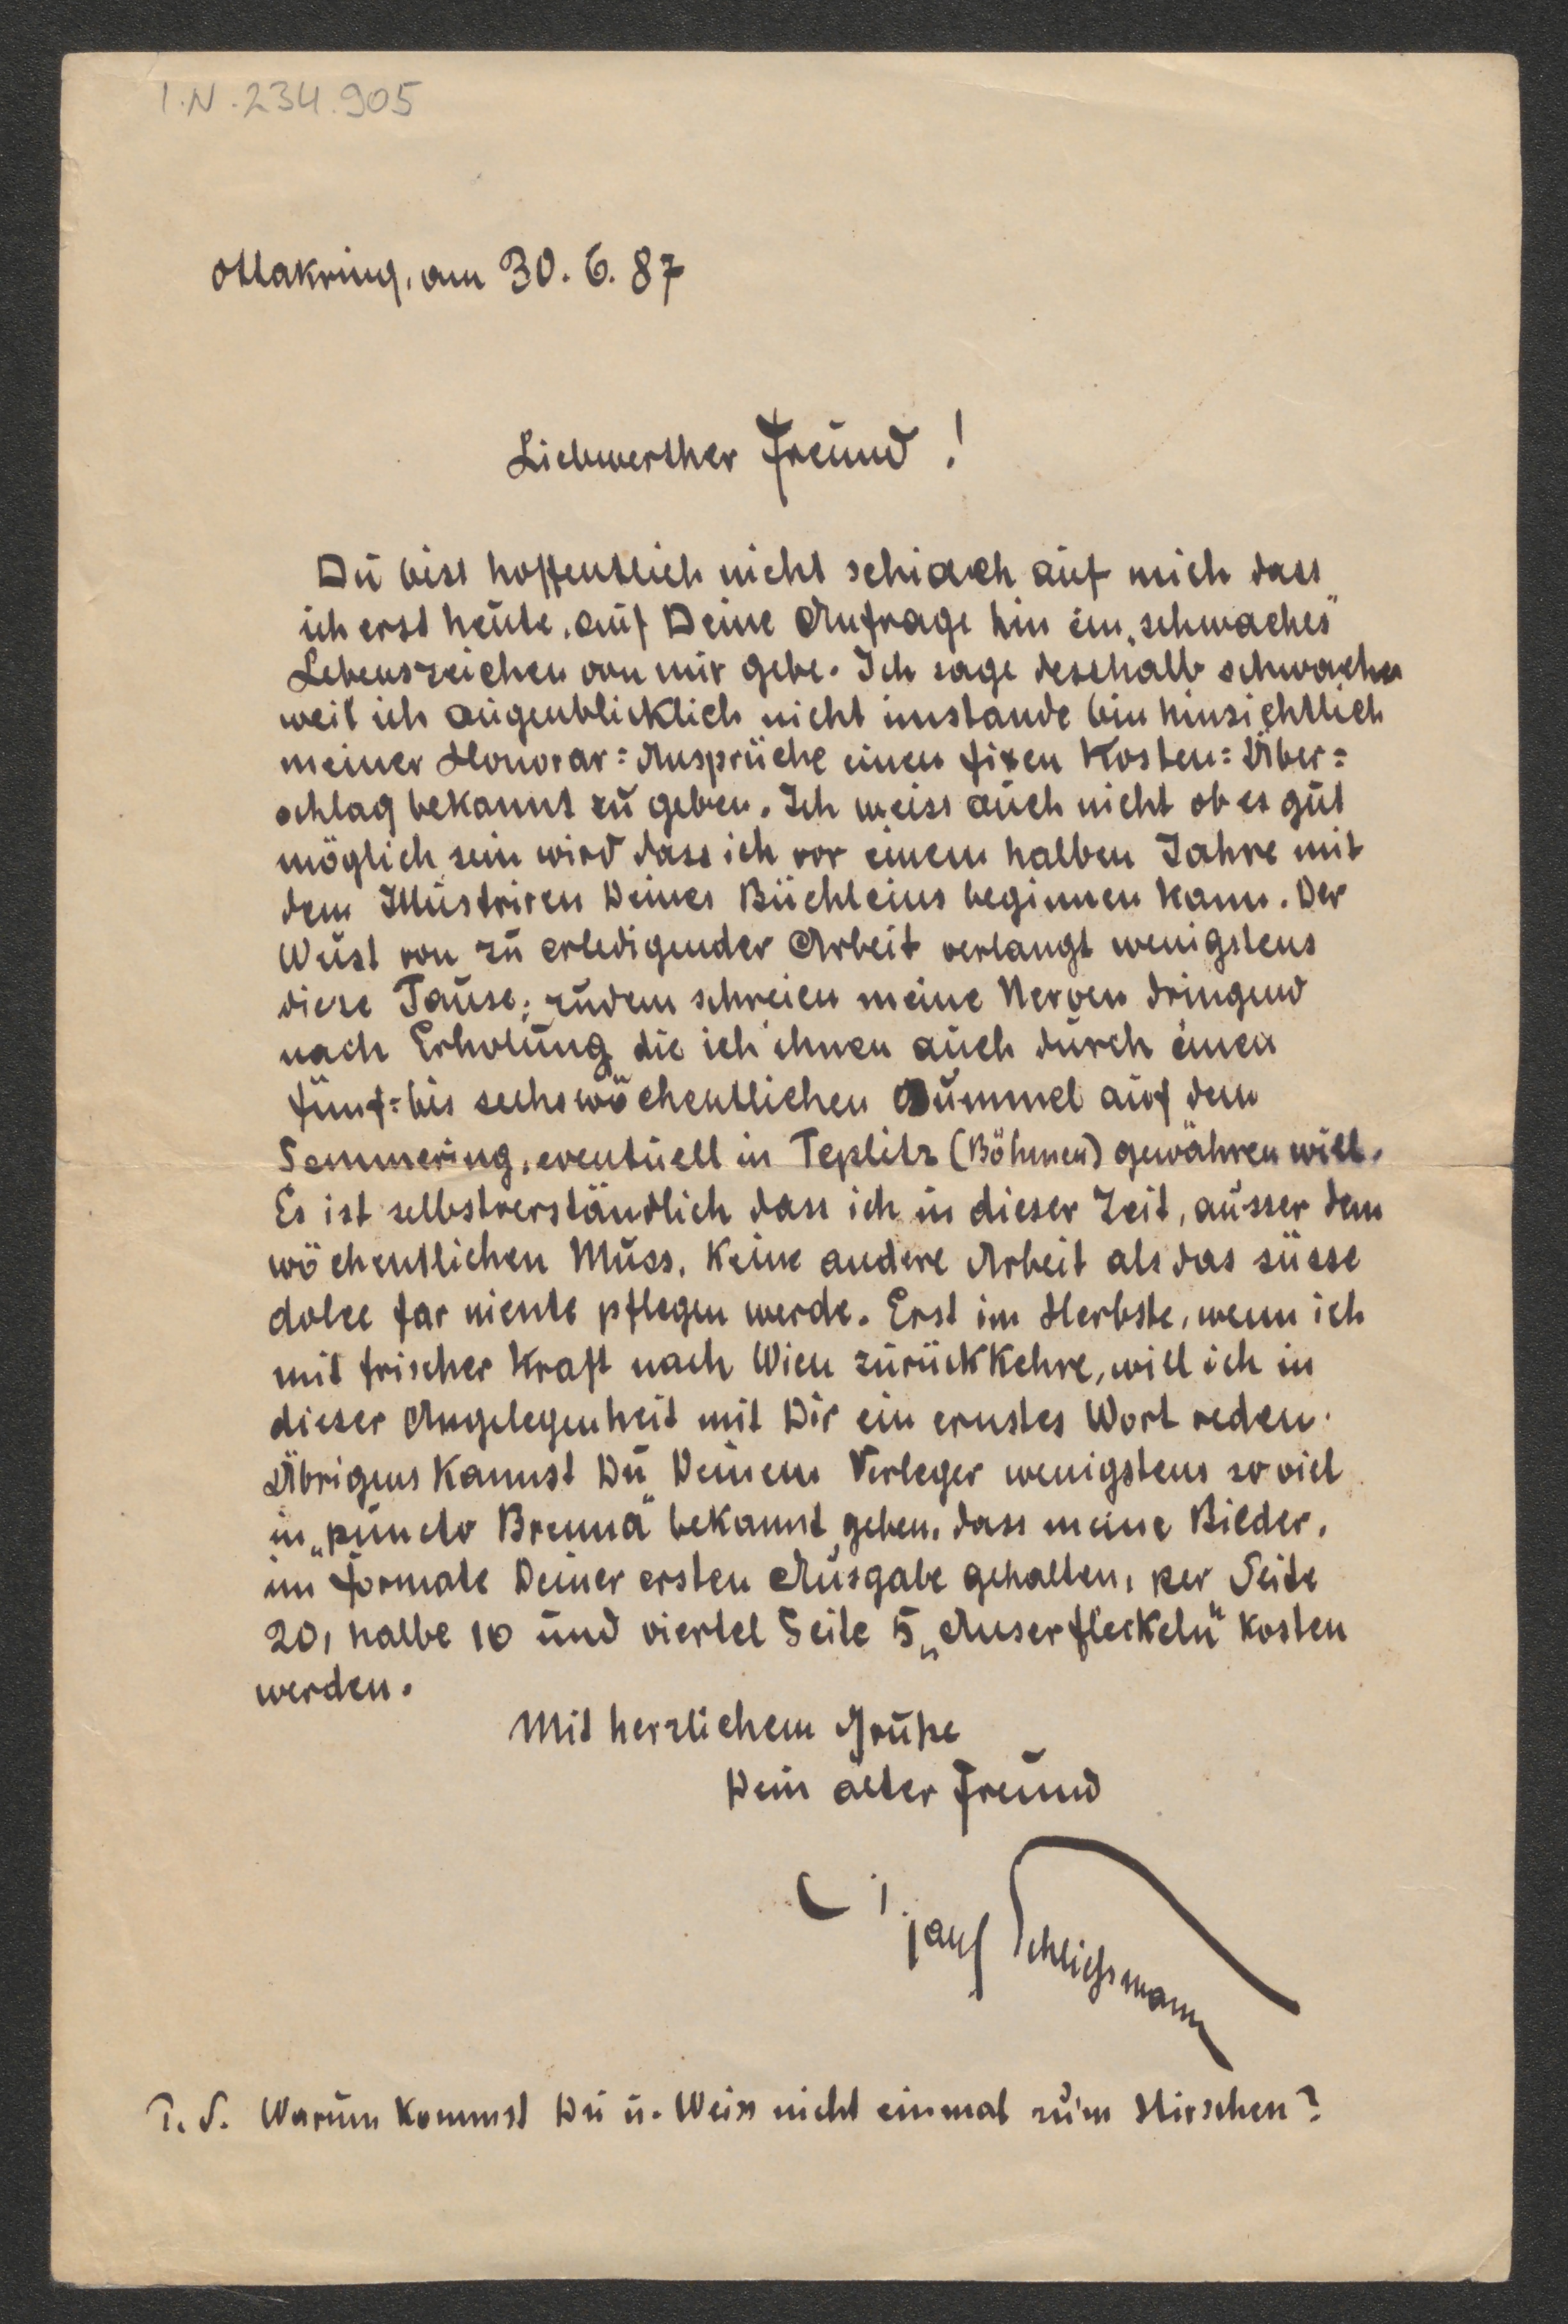 I.N.234.905
Ottakring, am 30. 6. 87
Liebwerther Freund!
Du bist hoffentlich nicht schiach auf mich dass
ich erst heute, auf Deine Anfrage hin ein „schwaches"
Lebenszeichen von mir gebe. Ich sage desshalb schwaches
weil ich augenblicklich nicht imstande bin hinsichtlich
meiner Honorar=Ansprüche einen fixen Kosten=Über=
schlag bekannt zu geben. Ich weiss auch nicht ob es gut
möglich sein wird dass ich vor einem halben Jahre mit
dem Illustriren Deines Büchleins beginnen kann. Der
Wust von zu erledigender Arbeit verlangt wenigstens
diese Pause; zudem schreien meine Nerven dringend
nach Erholung die ich ihnen auch durch einen
fünf=bis sechswöchentlichen Bummel auf dem
Semmering, eventuell in Teplitz (Böhmen) gewähren will.
Es ist selbstverständlich dass ich in dieser Zeit, ausser dem
wöchentlichen Muss, keine andere Arbeit als das süsse
dolce far niente pflegen werde. Erst im Herbste, wenn ich
mit frischer Kraft nach Wien zurückkehre, will ich in
dieser Angelegenheit mit Dir ein ernstes Wort reden.
Übrigens kannst Du Deinem Verleger wenigstens so viel
in „puncto Brenna" bekannt geben, dass meine Bilder,
im Formate Deiner ersten Ausgabe gehalten, per Seite
20, halbe 10 und viertel Seite 5 „Anserfleckeln" kosten
werden.
Mit herzlichem Gruße
Dein alter Freund
Schließmann
P. S. Warum kommst Du u. Weiss nicht einmal zum Hirschen?